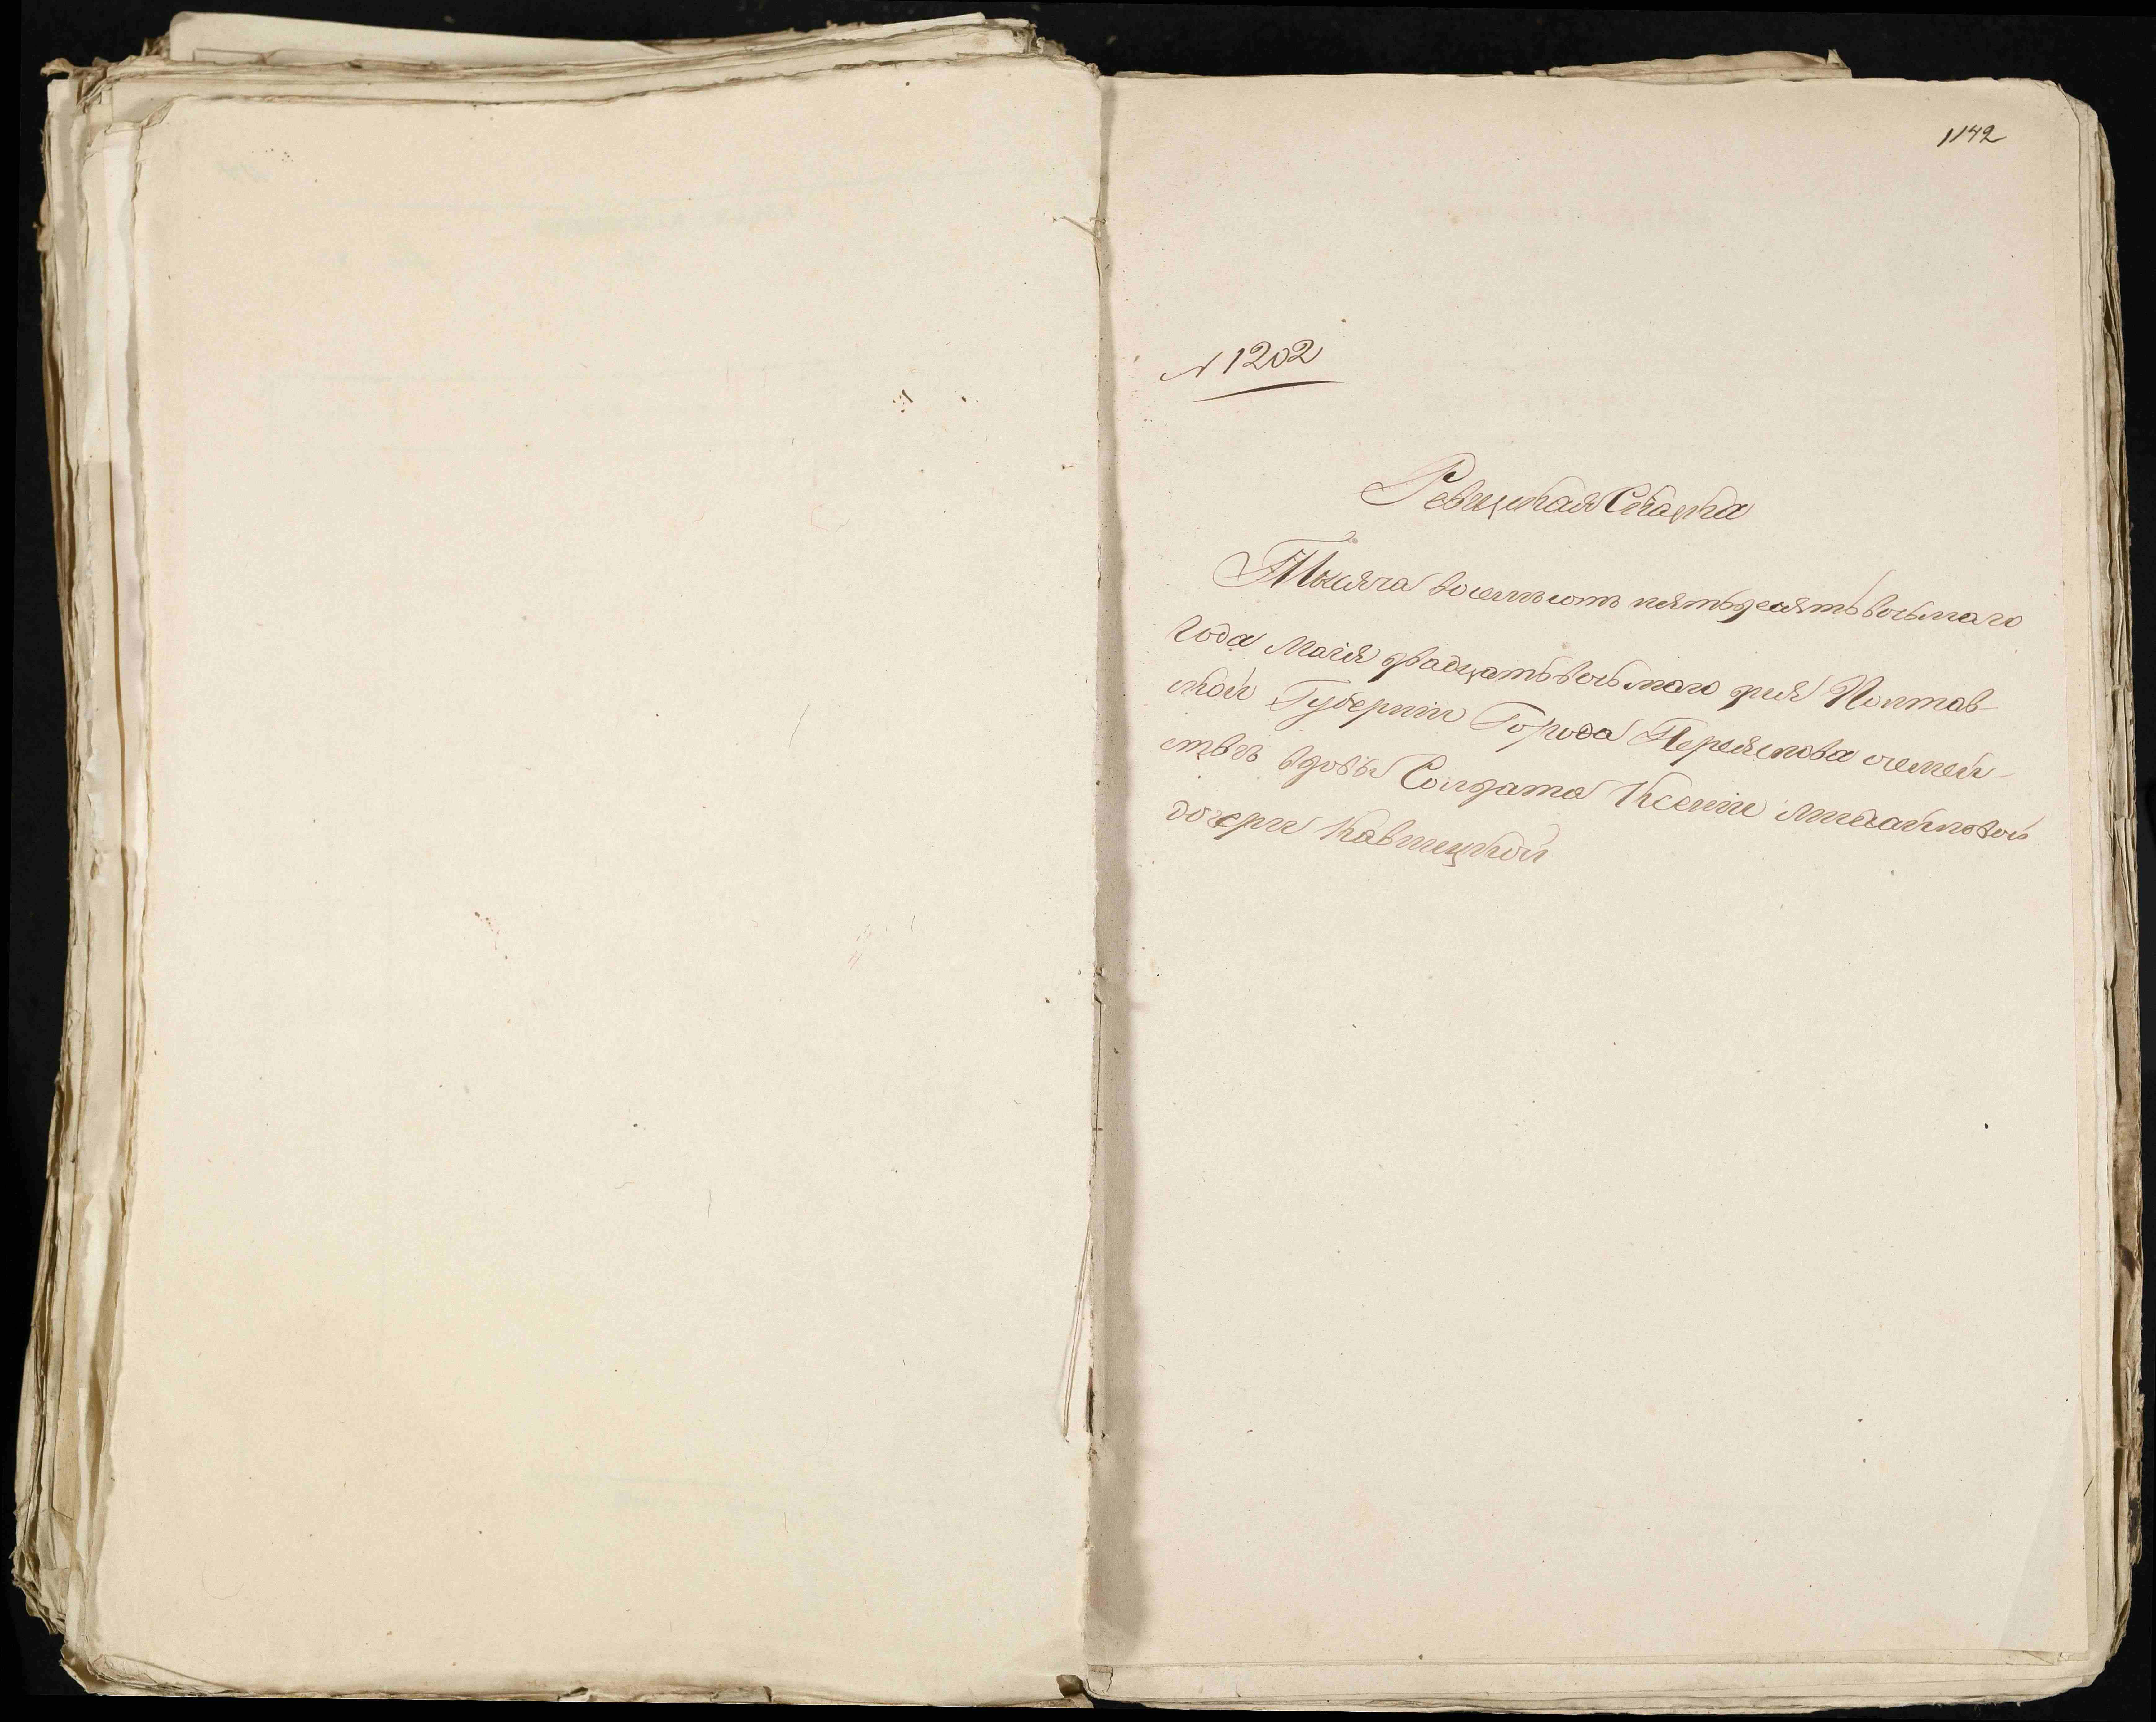 1142
№ 1202
Ревизская Сказка
Тысяча восемьсотъ пятьдесятъ восьмаго
года Маія двадцать восьмаго дня Полтав-
ской Губерніи Города Переяслова семей-
вдовы Солдата Ксеніи Михайловой
дочери